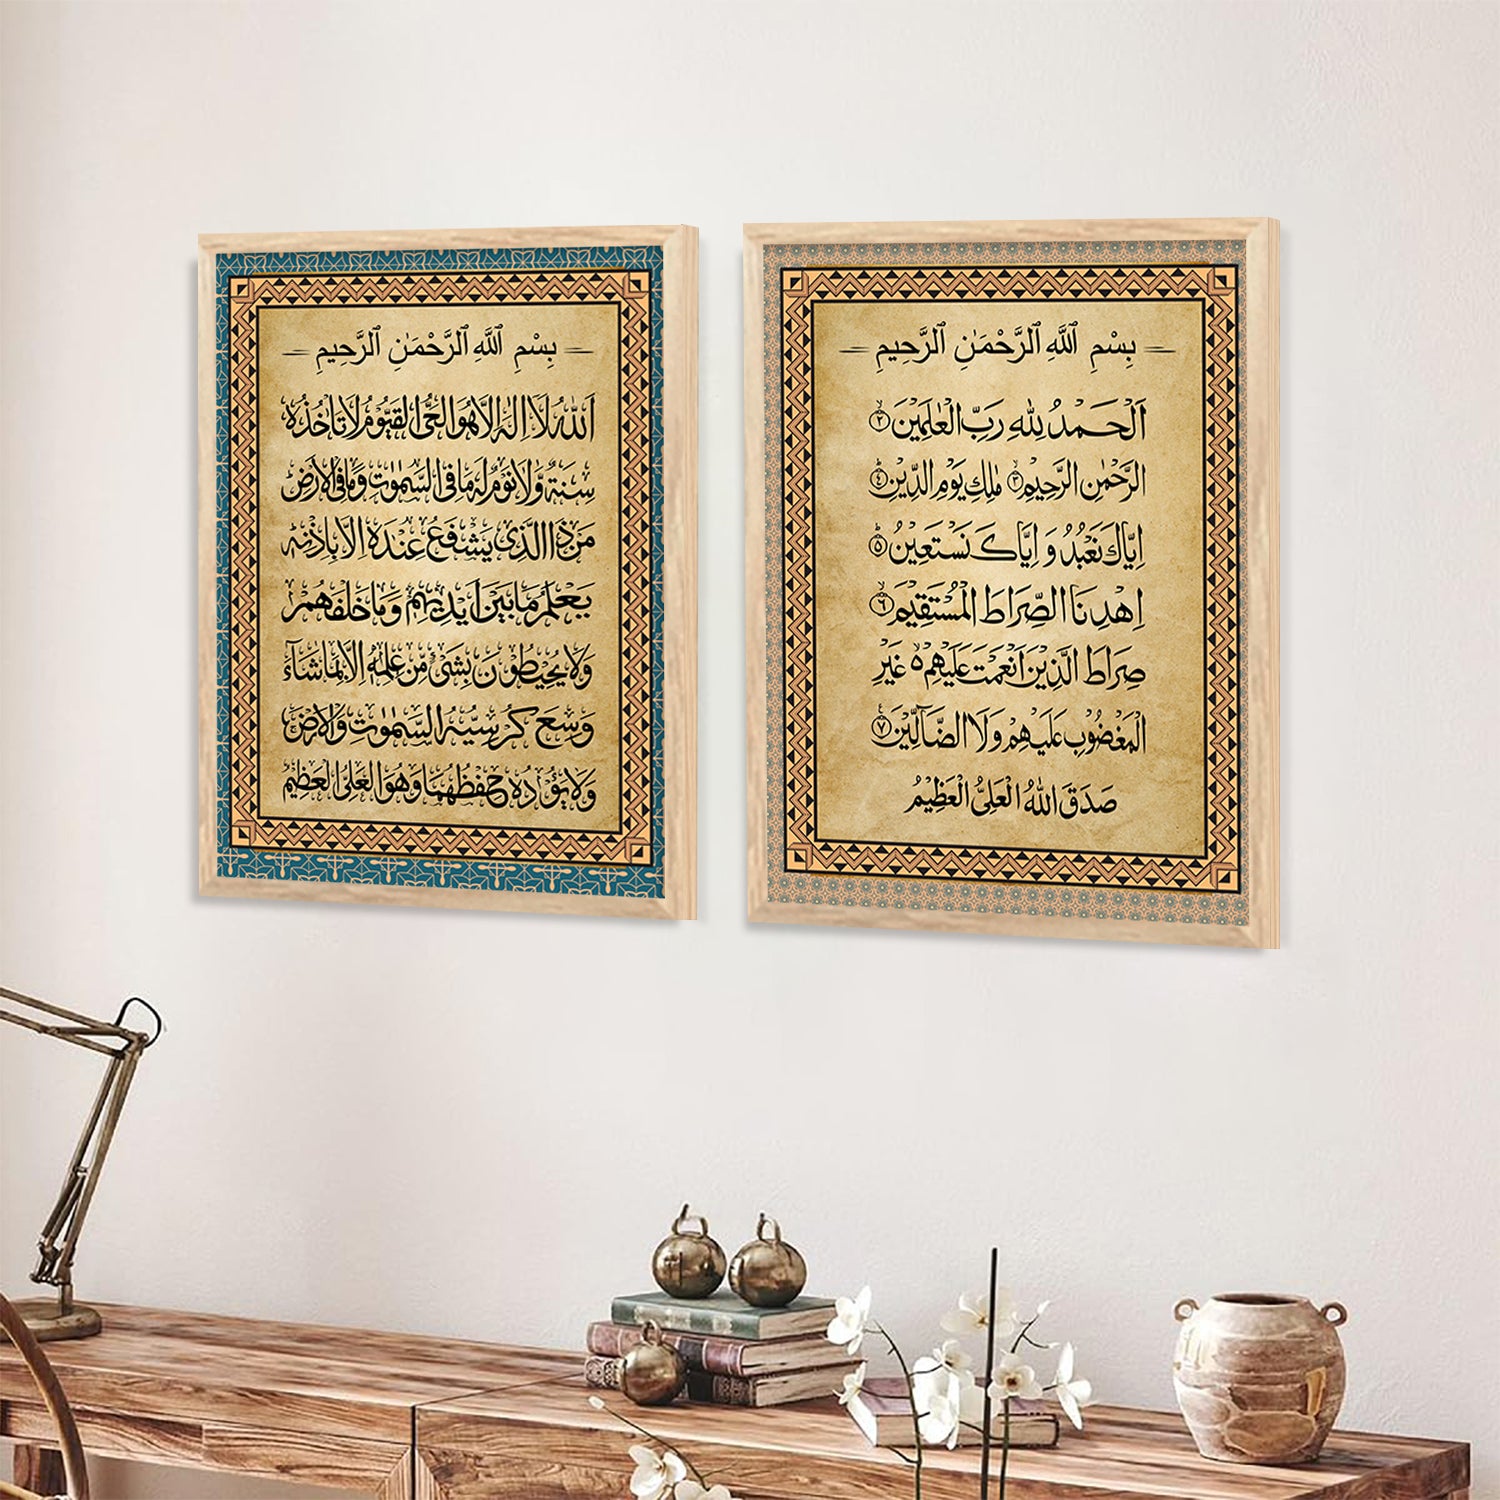 بِسْمِ ٱللَّهِ ٱلرَّحْمَٰنِ ٱلرَّحِيمِ
اَللّٰهُ لَا اِلٰهَ اِلَّا هُوَ الْحَيُّ الْقَيُّوْمُ لَا تَاْخُذُهٗ
سِنَةٌ وَّلَا نَوْمٌ لَهٗ مَا فِي السَّمٰوٰتِ وَمَا فِي الْاَرْضِ
مَنْ ذَا الَّذِيْ يَشْفَعُ عِنْدَهٗ اِلَّا بِاِذْنِهٖ ؕ
يَعْلَمُ مَا بَيْنَ اَيْدِيْهِمْ وَمَا خَلْفَهُمْ
وَلَا يُحِيْطُوْنَ بِشَيْءٍ مِّنْ عِلْمِهٖ اِلَّا بِمَا شَآءَ
وَسِعَ كُرْسِيُّهُ السَّمٰوٰتِ وَالْاَرْضَ
وَلَا يَئُوْدُهٗ حِفْظُهُمَا وَهُوَ الْعَلِيُّ الْعَظِيْمُ
بِسْمِ ٱللَّهِ ٱلرَّحْمَٰنِ ٱلرَّحِيمِ
اَلْحَمْدُ لِلّٰهِ رَبِّ الْعٰلَمِيْنَ ۲
الرَّحْمٰنِ الرَّحِيْمِ ۳ مٰلِكِ يَوْمِ الدِّيْنِ ٤
اِيَّاكَ نَعْبُدُ وَ اِيَّاكَ نَسْتَعِيْنُ ٥
اِهْدِنَا الصِّرَاطَ الْمُسْتَقِيْمَ ٦
صِرَاطَ الَّذِيْنَ اَنْعَمْتَ عَلَيْهِمْ ۵ غَيْرِ
الْمَغْضُوْبِ عَلَيْهِمْ وَلَا الضَّآلِّيْنَ ۷
صَدَقَ اللّٰهُ الْعَلِيُّ الْعَظِيْمُ